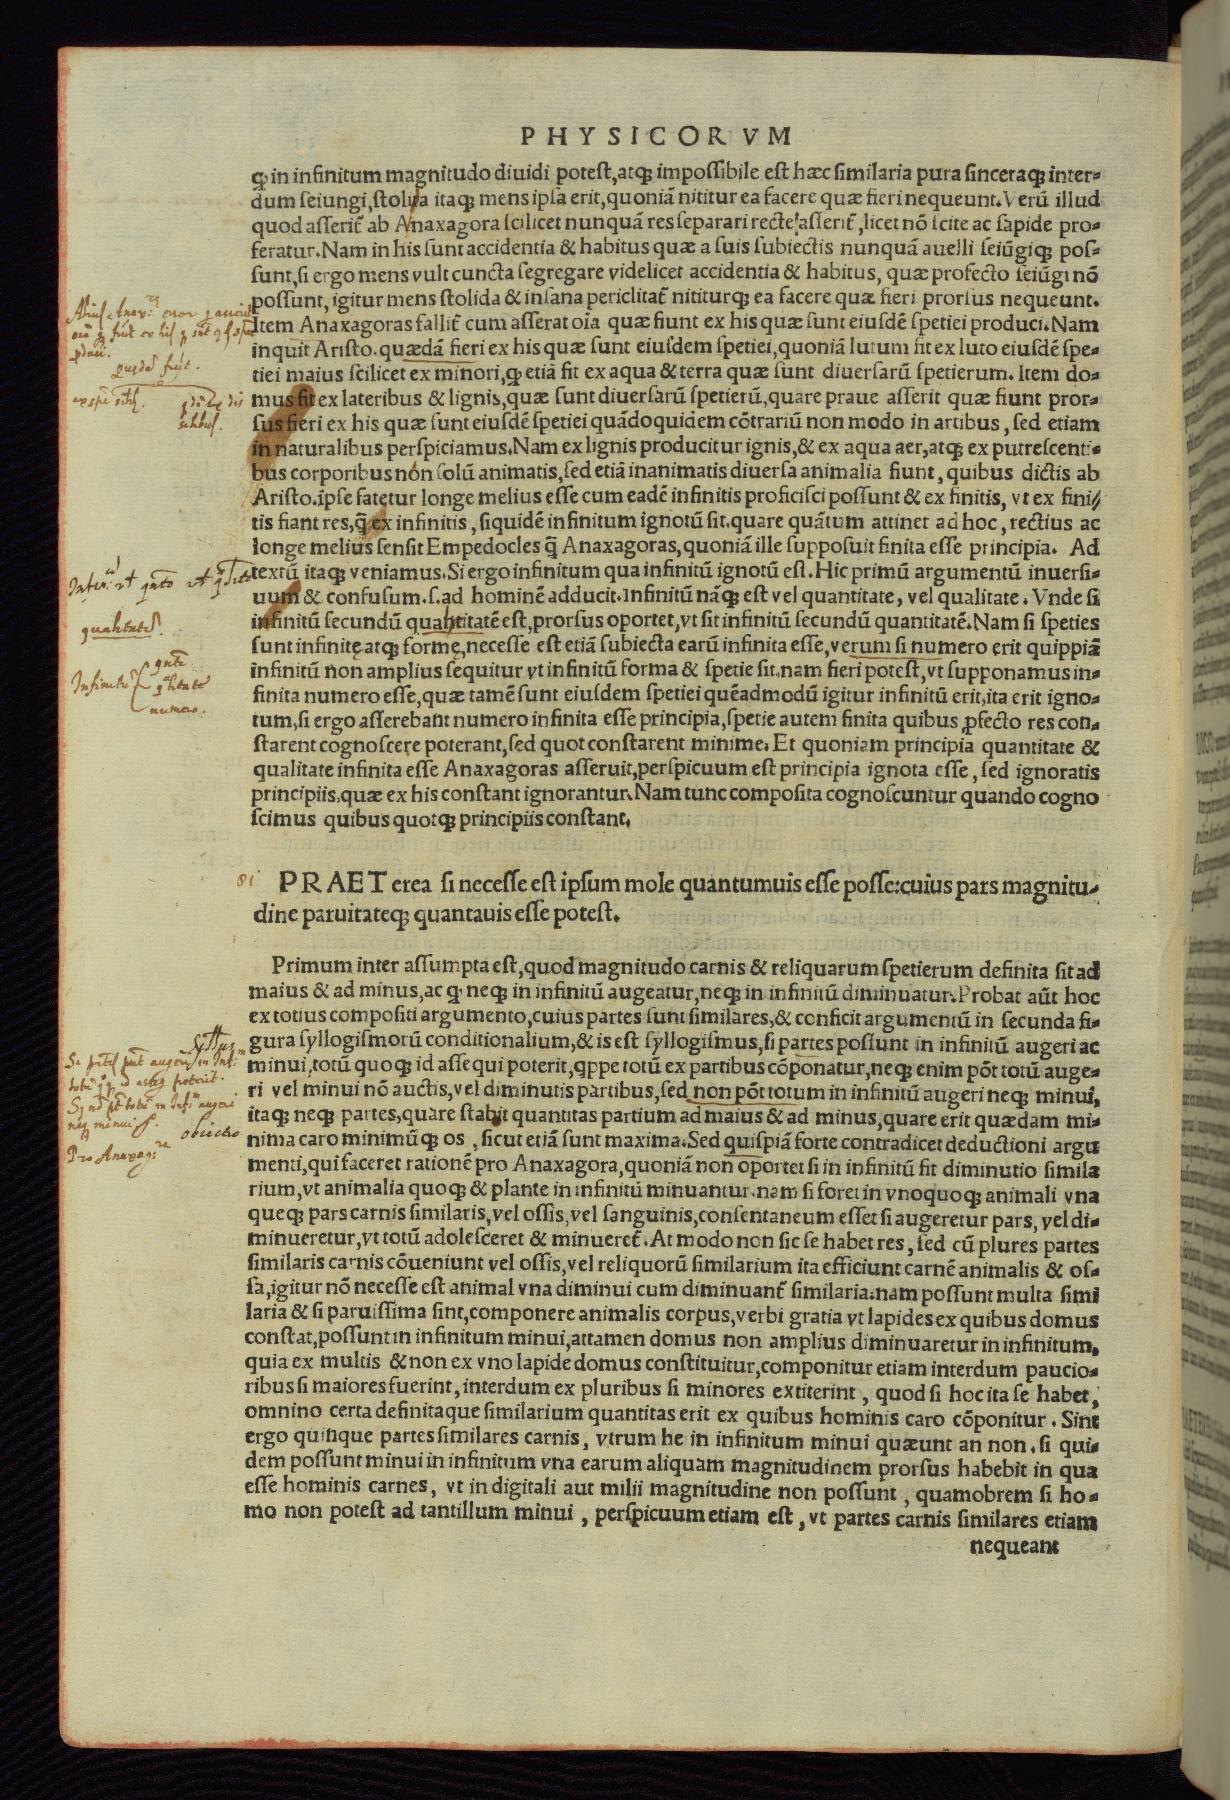 PHYSICORVM
ꝙ in infinitum magnitudo diuidi potest, atqꝫ impossibile est hæc similaria pura sinceraqꝫ inter-
dum seiungi, stolida itaqꝫ mens ipsa erit, quoniā nititur ea facere quæ fieri nequeunt. Verū illud
quod asserit̄ ab Anaxagora scilicet nunquā res separari recte asserit̄, licet nō scite ac sapide pro-
feratur. Nam in his sunt accidentia & habitus quæ a suis subiectis nunquā auelli seiūgiqꝫ pos-
sunt, si ergo mens vult cuncta segregare videlicet accidentia & habitus, quæ profecto seiūgi nō
possunt, igitur mens stolida & insana periclitat̄ nititurqꝫ ea facere quæ fieri prorsus nequeunt.
Item Anaxagoras fallit̄ cum asserat oīa quæ fiunt ex his quæ sunt eiusdē spetiei produci. Nam
inquit Aristo. quædā fieri ex his quæ sunt eiusdem spetiei, quoniā lutum fit ex luto eiusdē spe-
tiei maius scilicet ex minori, ꝙ etiā fit ex aqua & terra quæ sunt diuersarū spetierum. Item do-
mus fit ex lateribus & lignis, quæ sunt diuersarū spetierū, quare praue asserit quæ fiunt pror-
sus fieri ex his quæ sunt eiusdē spetiei quādoquidem cōtrariū non modo in artibus, sed etiam
in naturalibus perspiciamus. Nam ex lignis producitur ignis, & ex aqua aer, atqꝫ ex putrescenti-
bus corporibus non solū animatis, sed etiā inanimatis diuersa animalia fiunt, quibus dictis ab
Aristo. ipse fatetur longe melius esse cum eadē infinitis proficisci possunt & ex finitis, vt ex fini//
tis fiant res, q̄ ex infinitis, siquidē infinitum ignotū sit. quare quātum attinet ad hoc, rectius ac
longe melius sensit Empedocles q̄ Anaxagoras, quoniā ille supposuit finita esse principia. Ad
textū itaqꝫ veniamus. Si ergo infinitum qua infinitū ignotū est. Hic primū argumentū inuersi-
uum & confusum .s. ad hominē adducit. Infinitū nāqꝫ est vel quantitate, vel qualitate. Vnde si
infinitū secundū qualitatē est, prorsus oportet, vt sit infinitū secundū quantitatē. Nam si speties
sunt infinitę atqꝫ formę, necesse est etiā subiecta earū infinita esse, verum si numero erit quippiā
infinitū non amplius sequitur vt infinitū forma & spetie sit. nam fieri potest, vt supponamus in-
finita numero esse, quæ tamē sunt eiusdem spetiei quēadmodū igitur infinitū erit, ita erit igno-
tum, si ergo asserebant numero infinita esse principia, spetie autem finita quibus ꝓfecto res con-
starent cognoscere poterant, sed quot constarent minime. Et quoniam principia quantitate &
qualitate infinita esse Anaxagoras asseruit, perspicuum est principia ignota esse, sed ignoratis
principiis, quæ ex his constant ignorantur. Nam tunc composita cognoscuntur quando cogno
scimus quibus quotqꝫ principiis constant.
81 PRAETerea si necesse est ipsum mole quantumuis esse posse: cuius pars magnitu-
dine paruitateqꝫ quantauis esse potest.
Primum inter assumpta est, quod magnitudo carnis & reliquarum spetierum definita sit ad
maius & ad minus, ac ꝙ neqꝫ in infinitū augeatur, neqꝫ in infinitū diminuatur. Probat aūt hoc
ex totius compositi argumento, cuius partes sunt similares, & conficit argumentū in secunda fi-
gura syllogismorū conditionalium, & is est syllogismus, si partes possunt in infinitū augeri ac
minui, totū quoqꝫ id asse qui poterit, qppe totū ex partibus cōponatur, neqꝫ enim pōt totū auge-
ri vel minui nō auctis, vel diminutis partibus, sed non pōt totum in infinitū augeri neqꝫ minui,
itaqꝫ neqꝫ partes, quare stabit quantitas partium ad maius & ad minus, quare erit quædam mi-
nima caro minimūqꝫ os, sicut etiā sunt maxima. Sed quispiā forte contradicet deductioni argu
menti, qui faceret rationē pro Anaxagora, quoniā non oportet si in infinitū fit diminutio simila
rium, vt animalia quoqꝫ & plante in infinitū minuantur. nam si foret in vnoquoqꝫ animali vna
queqꝫ pars carnis similaris, vel ossis, vel sanguinis, consentaneum esset si augeretur pars, vel di-
minueretur, vt totū adolesceret & minueret̄. At modo non sic se habet res, sed cū plures partes
similaris carnis cōueniunt vel ossis, vel reliquorū similarium ita efficiunt carnē animalis & os-
sa, igitur nō necesse est animal vna diminui cum diminuant̄ similaria. nam possunt multa simi
laria & si paruissima sint, componere animalis corpus, verbi gratia vt lapides ex quibus domus
constat, possunt in infinitum minui, attamen domus non amplius diminuaretur in infinitum,
quia ex multis & non ex vno lapide domus constituitur, componitur etiam interdum paucio-
ribus si maiores fuerint, interdum ex pluribus si minores extiterint, quod si hoc ita se habet,
omnino certa definitaque similarium quantitas erit ex quibus hominis caro cōponitur. Sint
ergo quinque partes similares carnis, vtrum he in infinitum minui quæunt an non. si qui-
dem possunt minui in infinitum vna earum aliquam magnitudinem prorsus habebit in qua
esse hominis carnes, vt in digitali aut milii magnitudine non possunt, quamobrem si ho-
mo non potest ad tantillum minui, perspicuum etiam est, vt partes carnis similares etiam
nequeant
qualitate
Infinitū
numero.
obiectio
Pro Anaxag: